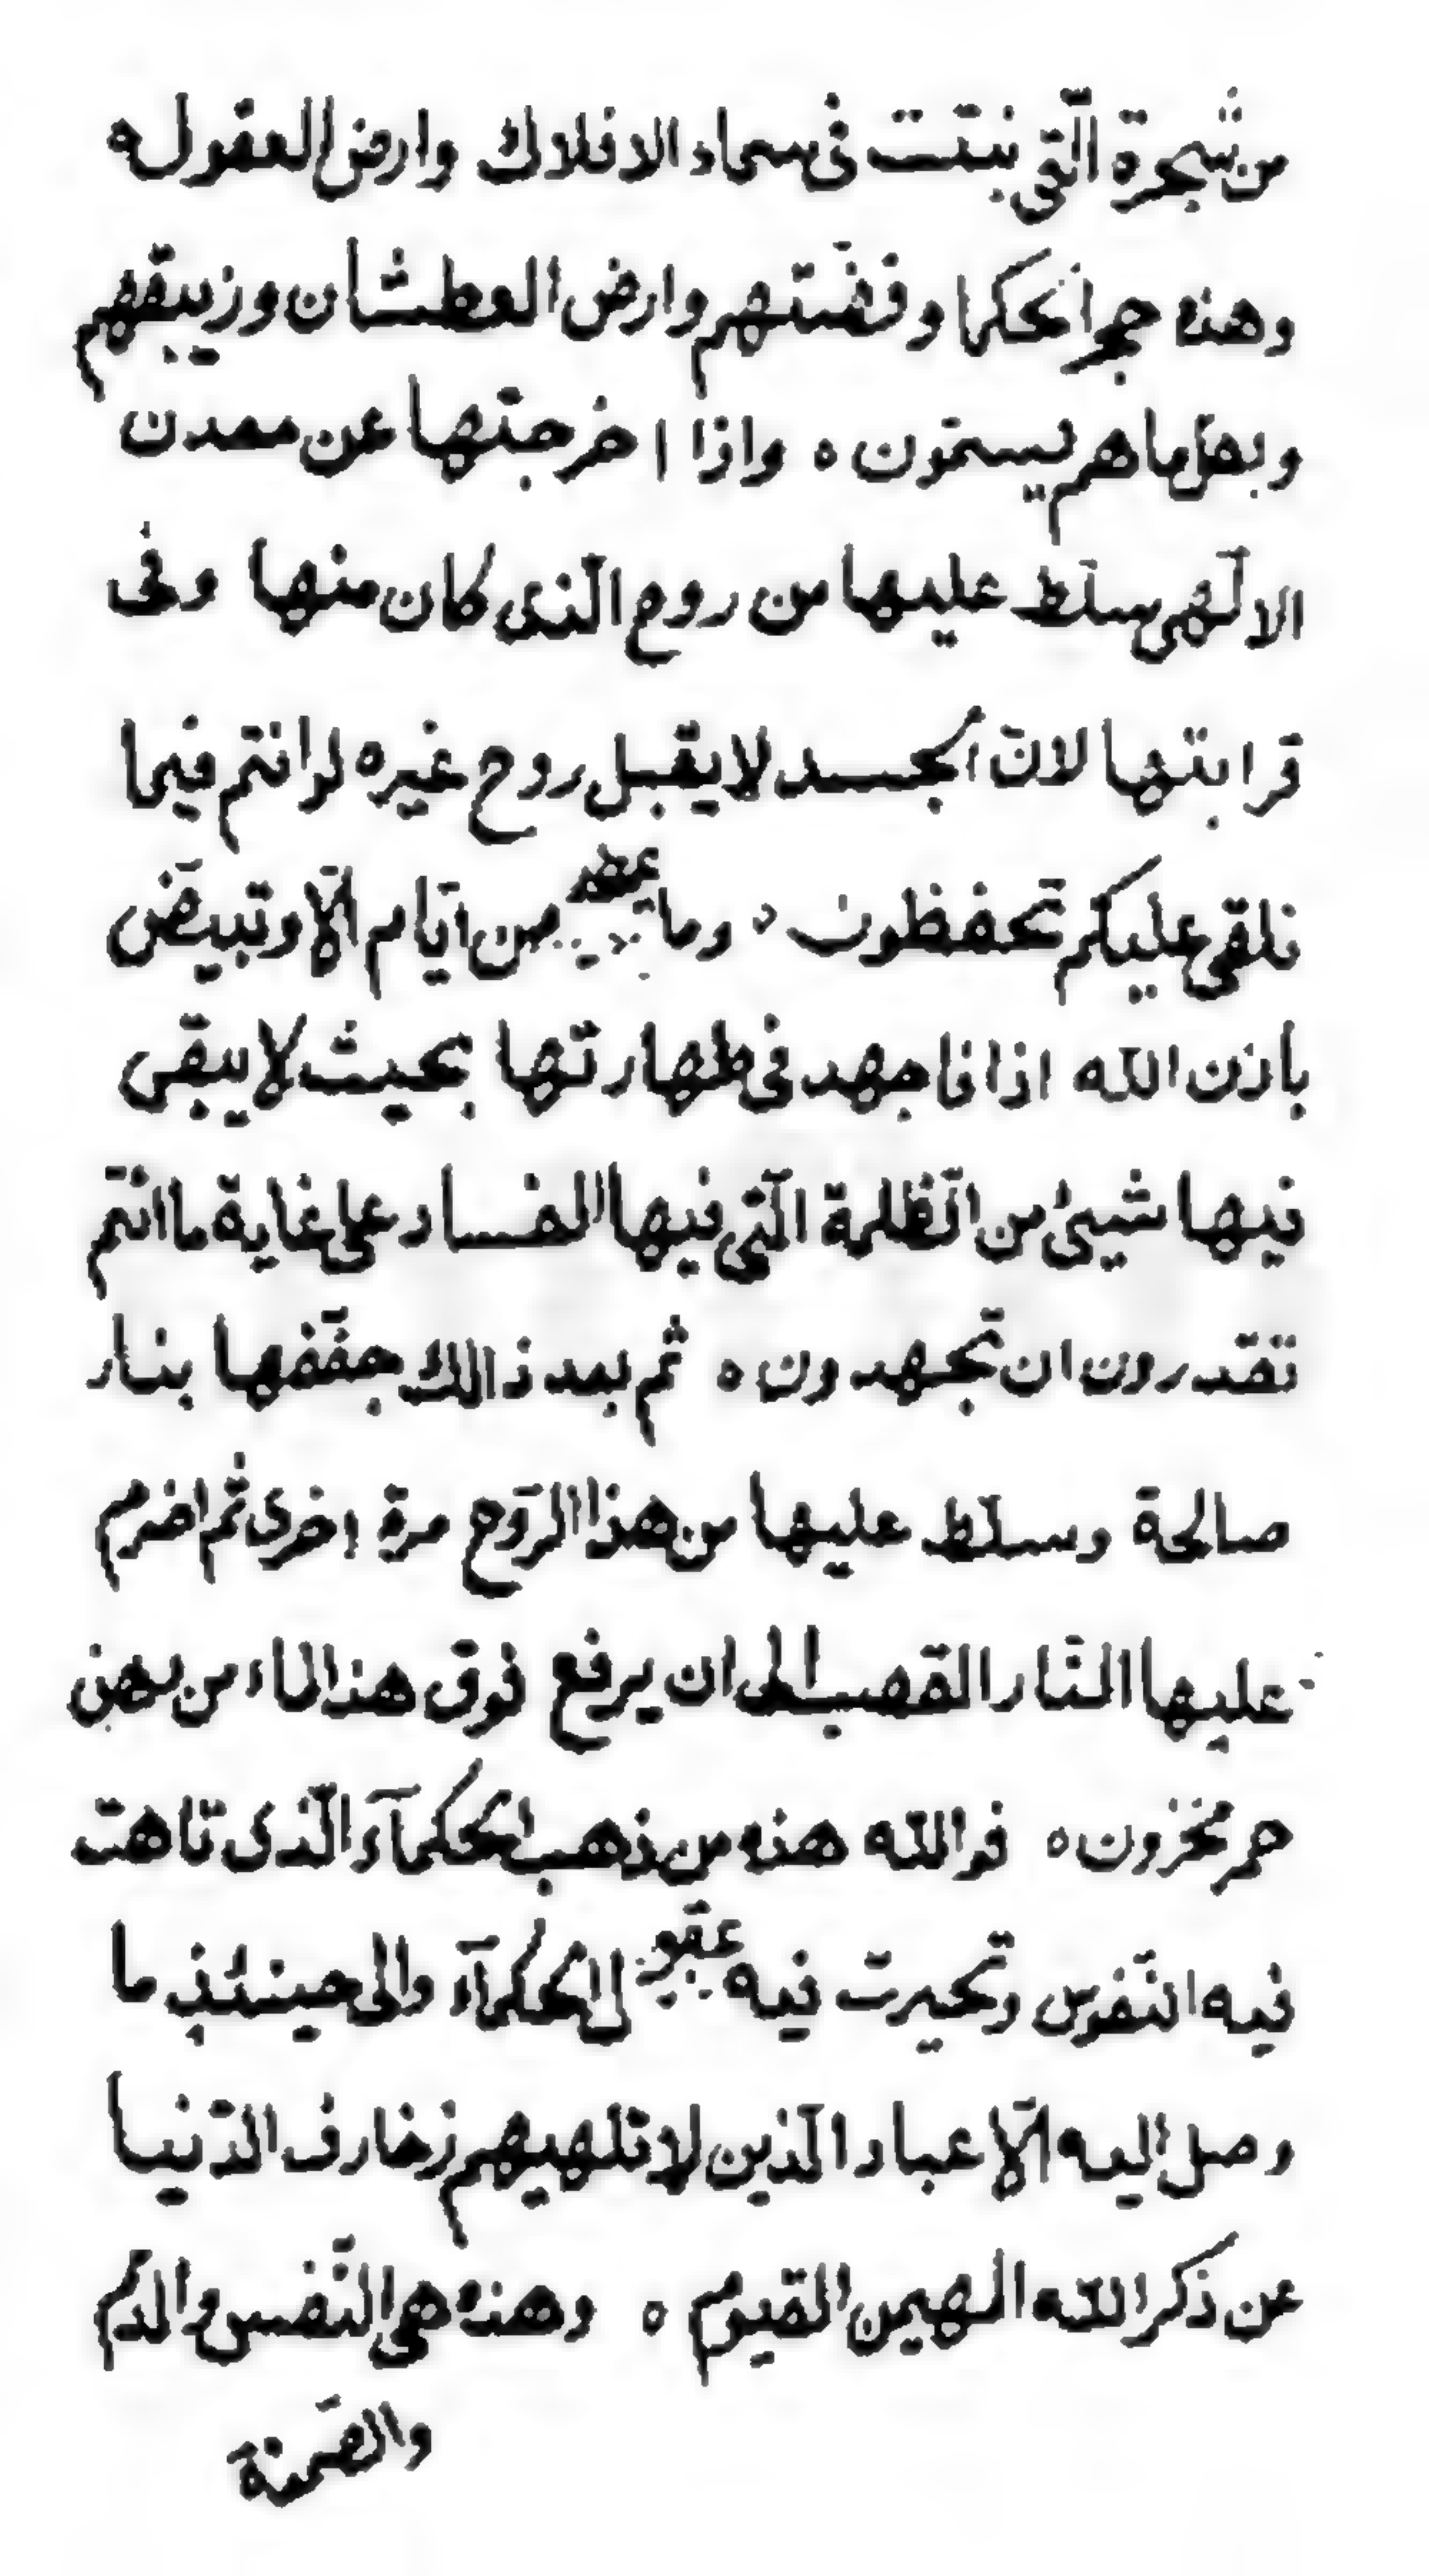 من شجرة الّتى نبتت فى سماء الافلاك وارض العقول ه
وهذه حجر الحكما وفضّتهم وارض العطشان وزيبقهم
وبهذا ما هم يسمّون ه واذا اخرجتها عن معدن
الالٓهى سلّط عليها من روح الّذى كان منها وفى
قرابتها لانّ الجسد لا يقبل روح غيره لو انتم فيما
نلقى عليكم تحفظون ه وما من ايّام الّا وتبيضّ
باذن الله اذا فاجهد فى طهارتها بحيث لا يبقى
فيها شيئ من الظّلمة الّتى فيها الفساد على غاية ما انتم
تقدرون ان تجهدون ه ثم بعد ذالك جفّفها بنار
صالحة وسلّط عليها من هذا الرّوح مرة اخرى ثم اضرم
عليها النّار القصب الى ان يرفع فوق هذا الماء من دهن
حمر مخزون ه فوالله هذه من ذهب الحكمآء الّذى تاهت
فيه النّفوس وتحيرت فيه عقول الحكمآء والى حينئذٍ ما
وصل اليه الّا عباد الّذين لا تلهيهم زخارف الدّنيا
عن ذكر الله المهيمن القيوم ه وهذه هى النّفس والدّم
والصّمغة